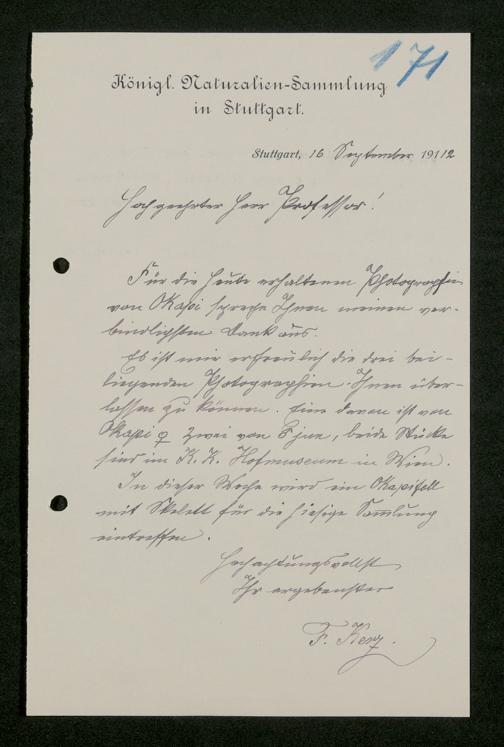 171
Königl. Naturalien-Sammlung
in Stuttgart.
Stuttgart, 16 September 1912
Hochgeehrter Herr Professor!
Für die heute erhaltenen Photographien
von Okapi spreche Ihnen meinen ver-
bindligsten Dank aus.
Es ist mir erfreulich die drei bei-
liegenden Photographien Ihnen über-
lassen zu können. Eine davon ist von
Okapi ♀ zwei von ♂ juv, beide Stücke
sind im K. K. Hofmuseum in Wien.
In dieser Woche wird ein Okapifell
mit Skelett für die hiesige Sammlung
eintreffen.
Hochachtungsvollst
Ihr ergebenster
F. Kerz.